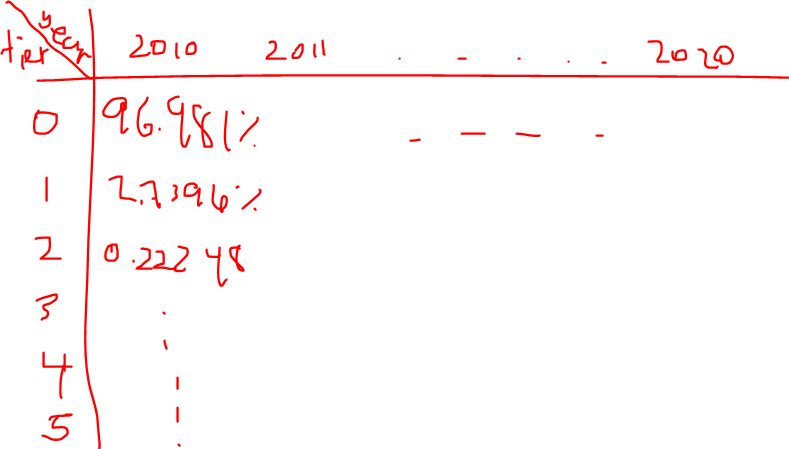 year
tier 2010 2011 . - . . . 2020
0 96.981% - - - -
1 2.7396%
2 0.22248
3
4
5